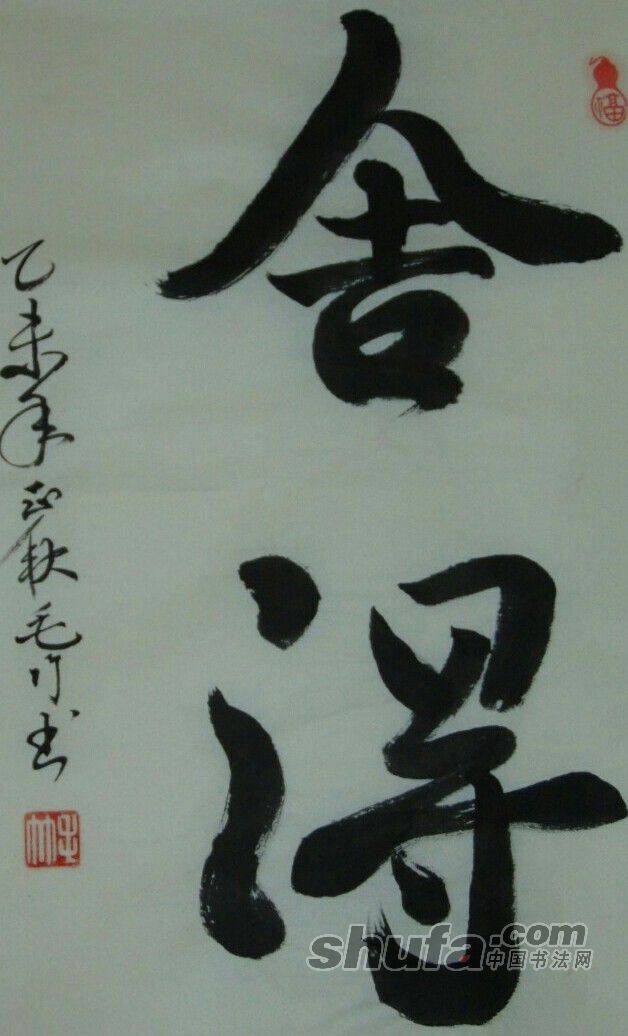 舍得
乙未年 秋毛竹书
福
shufa.com
中国书法网